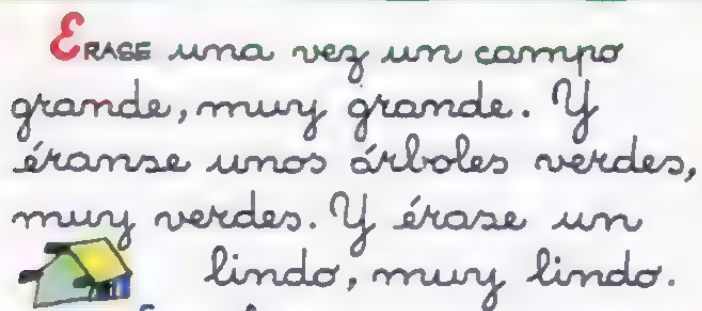 ERASE una vez un campo
grande, muy grande. Y
éranse unos árboles verdes,
muy verdes. Y érase un
lindo, muy lindo.